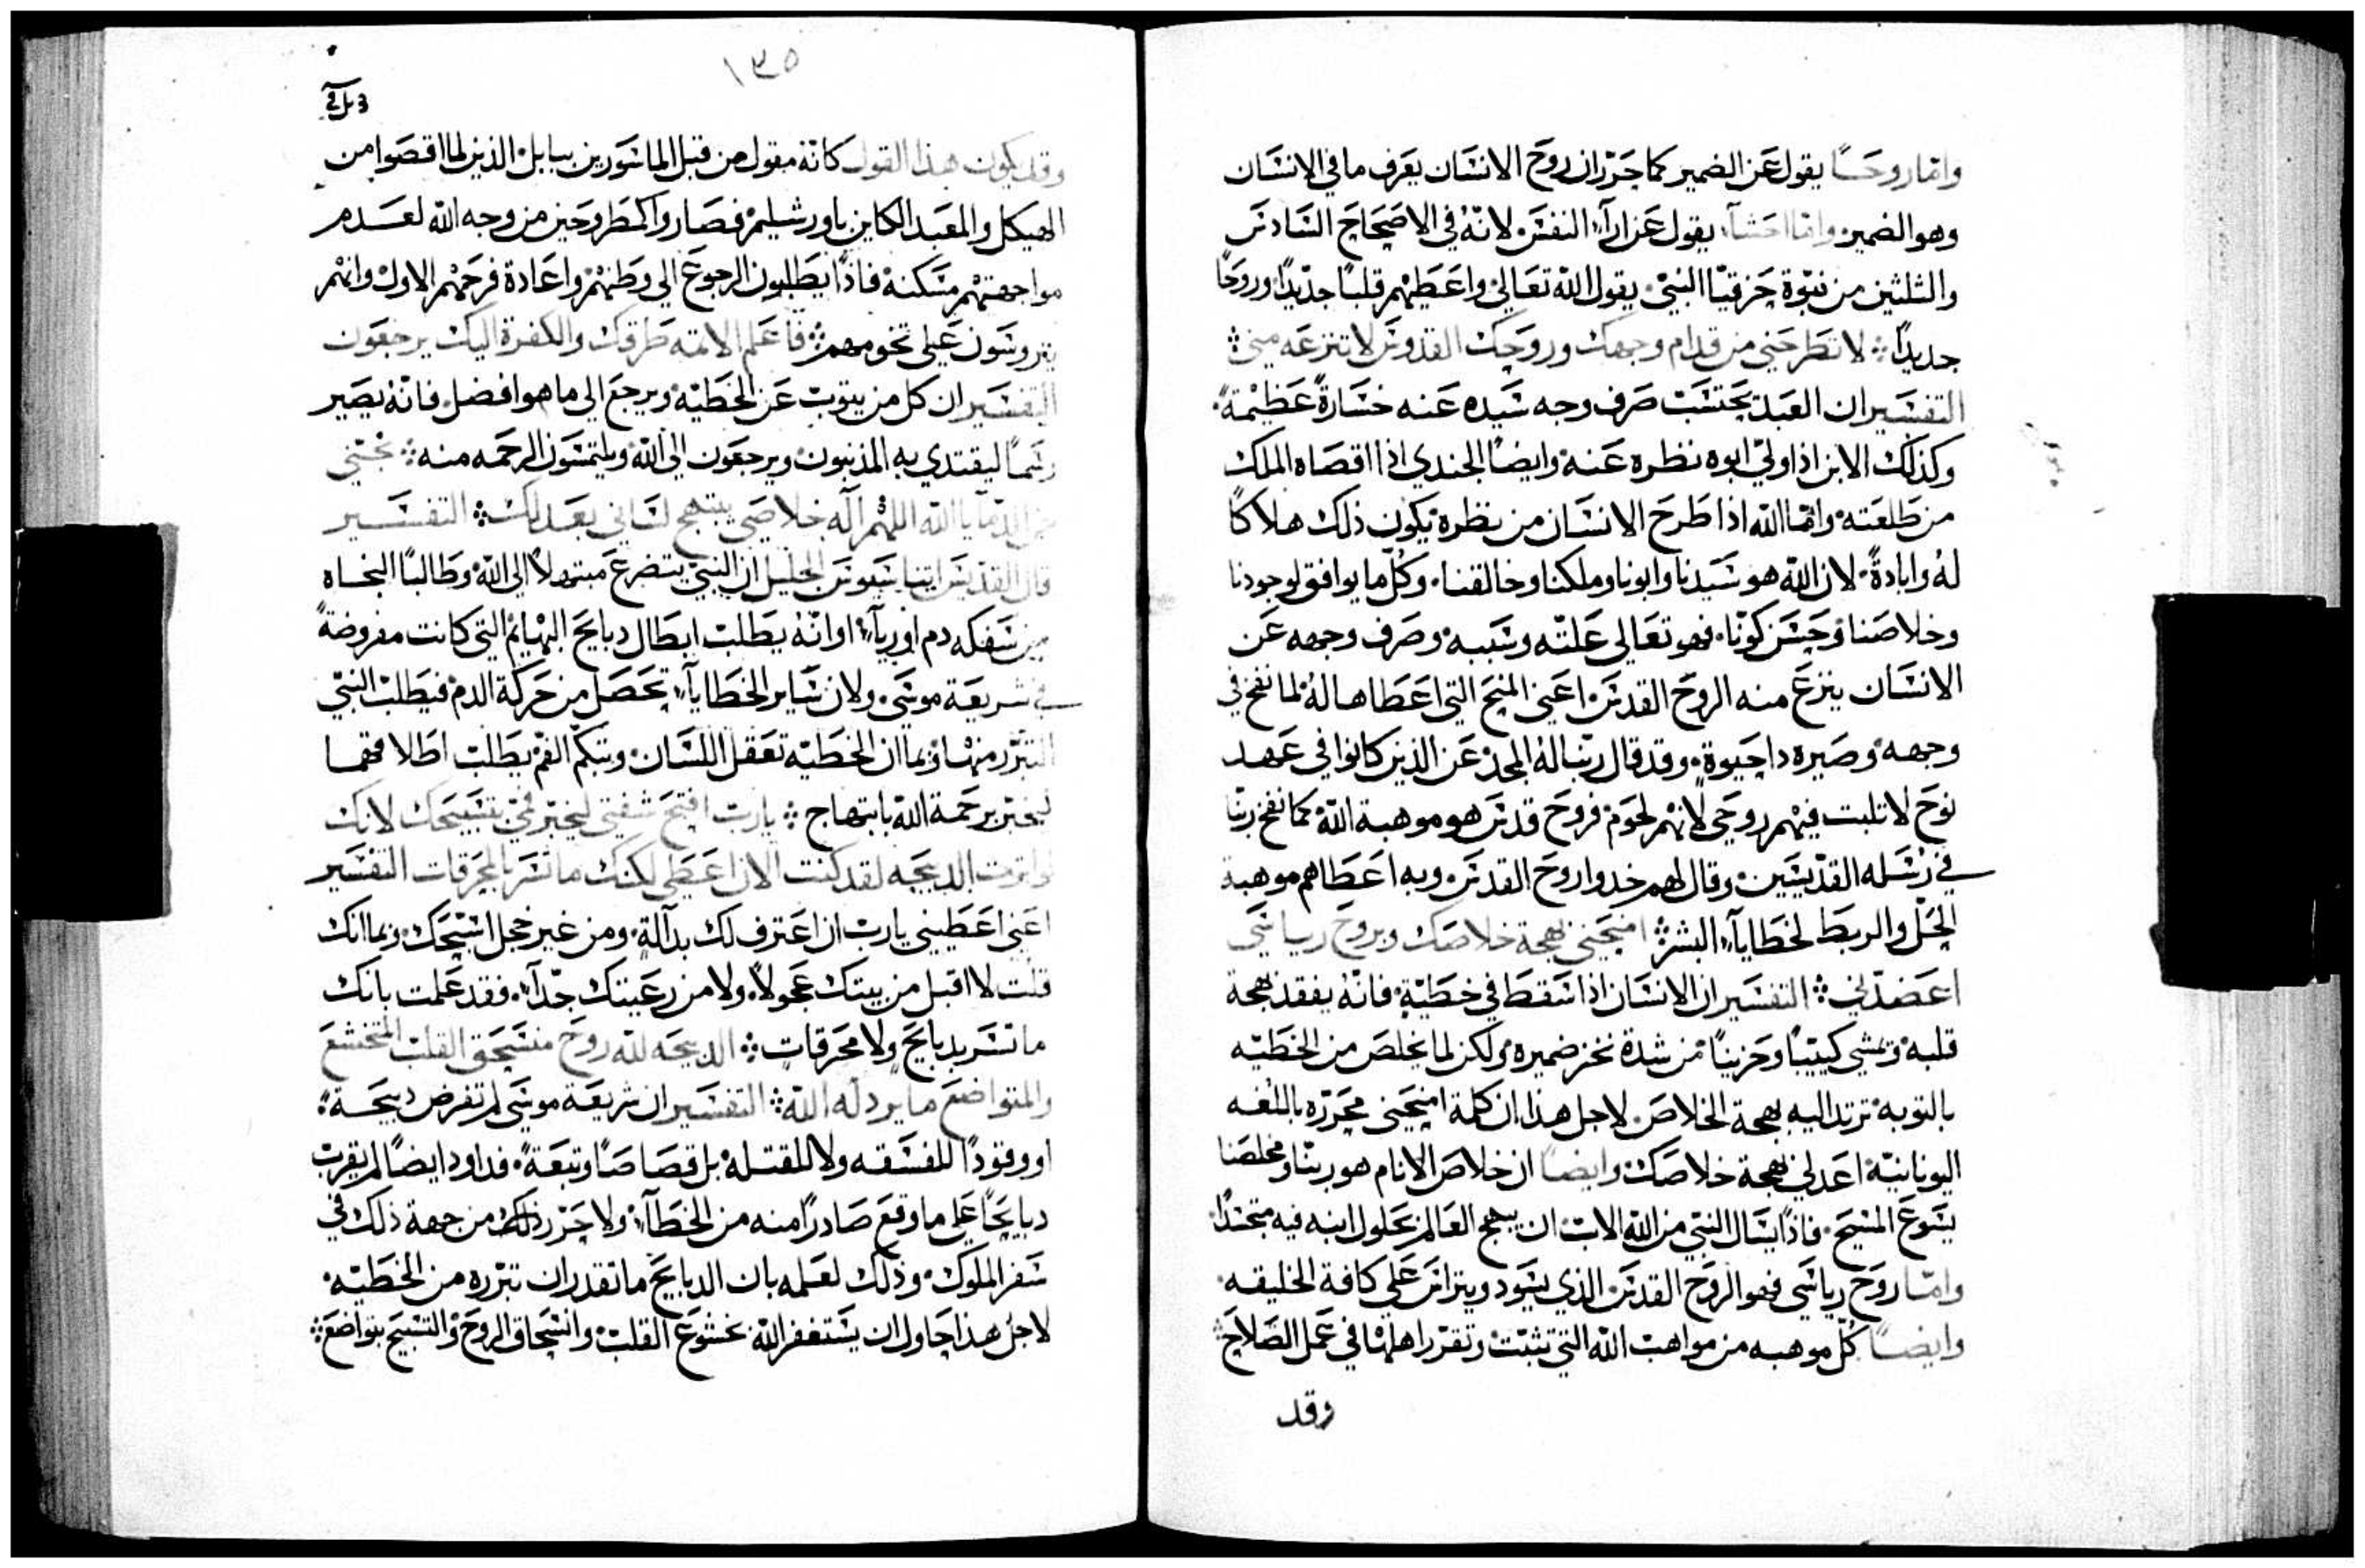 وامّا روحًا يقول عن الضمير كما حرّر ان روح الانسان يعرف ما في الانسان
وهو الضمير وامّا احشآء يقول عن ارآء النفس لانّه في الاصحاح السادس
والثلثين من نبوّة حزقيّا النبيّ يقول الله تعالى واعطيهم قلبًا جديدًا وروحًا
جديدًا لا تطرحني من قدام وجهك وروحك القدوس لا تنزعه منيّ
التفسير ان العبد يحتسب صرف وجه سيده عنه خسارةً عظيمةً
وكذلك الابن اذا ولّي ابوه نظره عنه وايضًا الجندي اذا اقصاه الملك
من طلعته وامّا الله اذا طرح الانسان من نظره يكون ذلك هلاكًا
لهُ وابادةً لان الله هو سيدنا وابونا وملكنا وخالقنا وكلّ ما يوافق لوجودنا
وخلاصنا وحسن كوننا فهو تعالى علّته وسببه وصرف وجهه عن
الانسان ينزع منه الروح القدس اعني المنح التي اعطاها لهُ لما نفخ في
وجهه وصيره دا حيوة وقد قال ربّنا لهُ المجد عن الذين كانوا في عهد
نوح لا تلبت فيهم روحي لانهم لحوم فروح قدس هو موهبة الله كما نفخ ربّنا
في رسله القدّيسين وقال لهم خدوا روح القدس وبه اعطاهم موهبة
الحلّ والربط لخطايآء البشر امنحني بهجة خلاصك وبروح رياسيّ
اعضدني التفسير ان الانسان اذا سقط في خطيّة فانّه يفقد بهجة
قلبه ويمشي كييبًا وحزينًا من شدة نخز ضميره ولكن لما يخلص من الخطيّه
بالتوبه ترتد اليه بهجة الخلاص لاجل هذا ان كلمة امنحني محرّره باللغه
اليونانيّة اعد لي بهجة خلاصك وايضًا ان خلاص الانام هو ربنّا ومخلصنا
يسوع المسيح فاذًا يسال النبيّ من الله الاب ان يبهج العالم بحلول ابنه فيه متجسّدًا
وامّا روح رياسي فهو الروح القدس الذي يسود ويتراس على كافة الخليقه
وايضًا كلّ موهبه من مواهب الله التي تثبّت وتقرّر اهلها في عمل الصلاح
وقد
١٣٥
وقد يكون هذا القول كانّه مقول من قبل الماسورين ببابل الذين لما اقصوا من
الهيكل والمعبد الكاين باورشليم فصاروا كمطروحين من وجه الله لعدم
مواجهتهم مسكنه فاذًا يطلبون الرجوع الى وطنهم واعادة فرحهم الاول وانهم
يتروسون على تخومهم فاعلم الاثمه طرقك والكفرة اليك يرجعون
التفسير ان كل من يتوب عن الخطيّه ويرجع الى ما هو افضل فانّه يصير
رسمًا ليقتدي به المذنبون ويرجعون الى الله ويلتمسون الرحمه منه نجّني
من الدمآء يا الله اللهّم اله خلاصي يبتهج لساني بعدلك التفسير
قال القديس اثناسيوس الجليل ان النبيّ يتضرع مبتهلًا الى الله وطالبًا النجاه
من سفكه دم اوريآء او انّه يطلب ابطال دبايح البهايم التي كانت مفروضةً
في شريعة موسى ولان ساير الخطايآء تحصل من حركة الدم فيطلب النبيّ
التبرّر منها وبما ان الخطيّه تعقل اللسان وتبكّم الفم يطلب اطلاقهما
ليخبّر برحمة الله بابتهاج يارب افتح شفتي ليخبّر فمي بتسبيحك لانك
لو اثرت الدبيحه لقد كنت الان اعطي لكنك ما تسر بالمحرقات التفسير
اعني اعطيني يارب ان اعترف لك بدآلة ومن غير خجل اسبّحك وبما انك
قلت لا اقبل من بيتك عجولًا ولا من رعيتك جدآء فقد علمت بانك
ما تسر بدبايح ولا محرقات الدبيحه لله روح منسحق القلب المتخشع
والمتواضع ما يردله الله التفسير ان شريعة موسى لم تفرض دبيحةً
او وقودًا للفسقه ولا للقتله بل قصاصًا وتبعةً فداود ايضًا لم يقرب
دبايحًا على ما وقع صادرًا منه من الخطآء ولا حرّر ذلك من جهة ذلك في
سفر الملوك وذلك لعلمه بان الدبايح ما تقدر ان تبرّره من الخطيّه
لاجل هذا حاول ان يستغفر الله بخشوع القلب وانسحاق الروح والتسبيح بتواضع